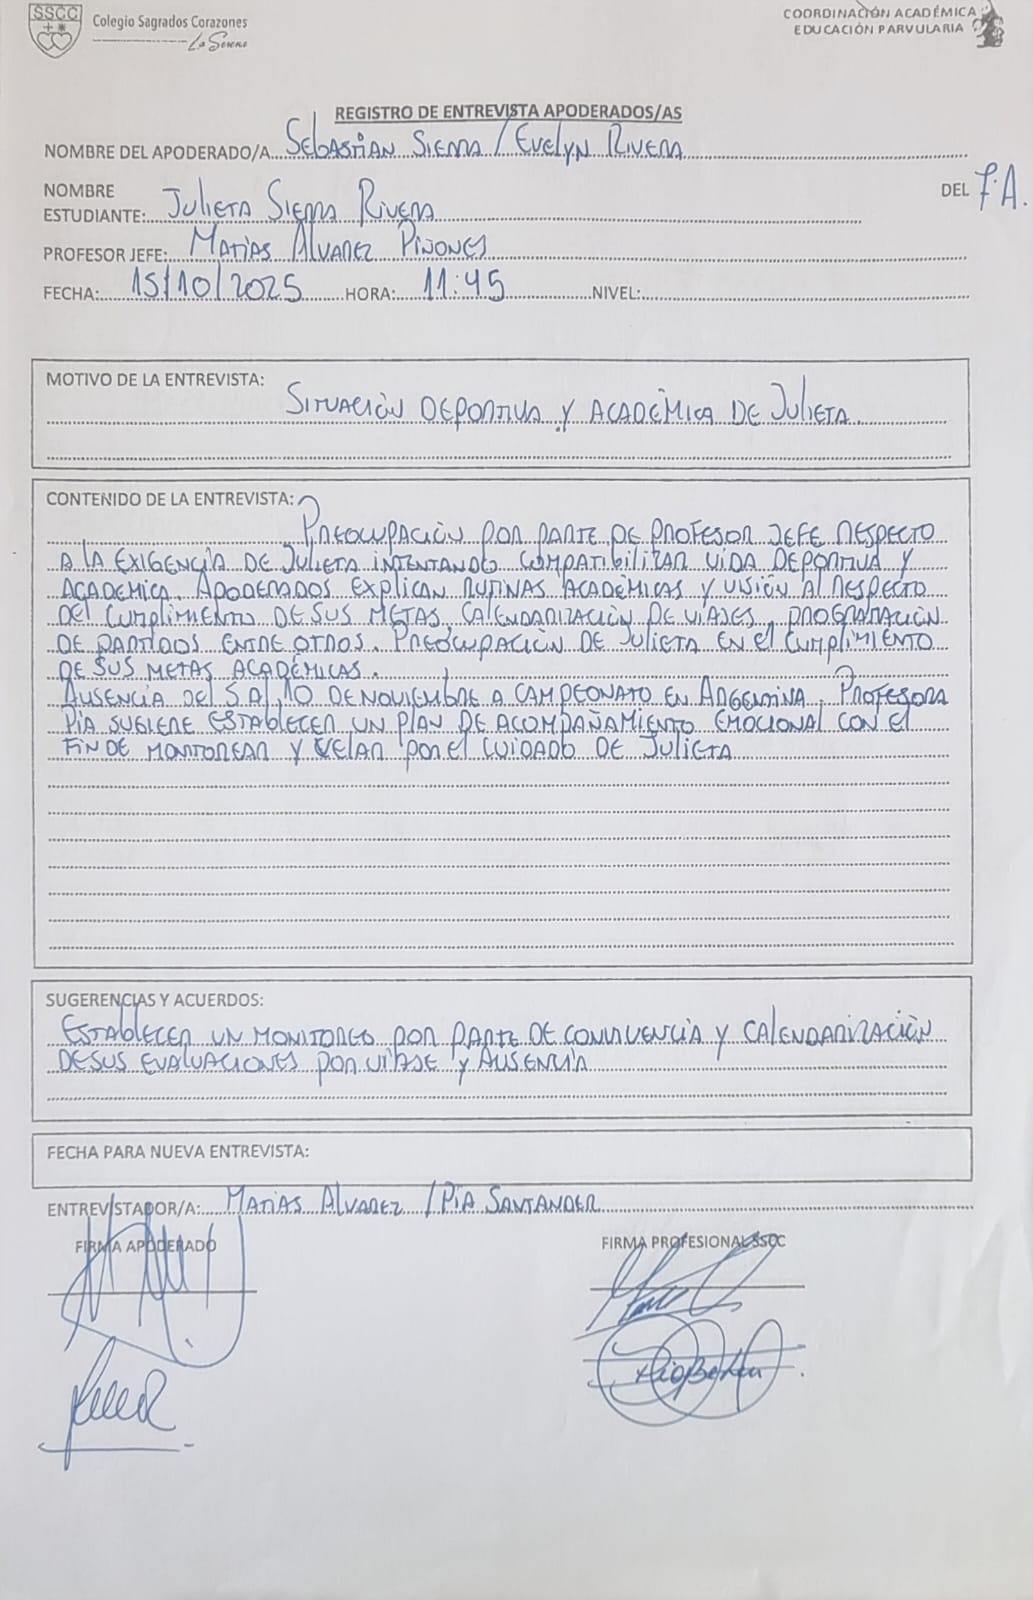 SSCC
Colegio Sagrados Corazones
La Serena
COORDINACIÓN ACADÉMICA
EDUCACIÓN PARVULARIA
REGISTRO DE ENTREVISTA APODERADOS/AS
NOMBRE DEL APODERADO/A Sebastián Sierra / Evelyn Rivera
NOMBRE DEL 7°A.
ESTUDIANTE: Julieta Sierra Rivera
PROFESOR JEFE: Matías Álvarez Piñones
FECHA: 15/10/2025 HORA: 11:45 NIVEL:
MOTIVO DE LA ENTREVISTA:
Situación deportiva y académica de Julieta
CONTENIDO DE LA ENTREVISTA:
Preocupación por parte de profesor jefe respecto
a la exigencia de Julieta intentando compatibilizar vida deportiva y
académica. Apoderados explican rutinas académicas y visión al respecto
del cumplimiento de sus metas, calendarización de viajes, programación
de partidos entre otros. Preocupación de Julieta en el cumplimiento
de sus metas académicas.
Ausencia del 5 al 10 de noviembre a campeonato en Argentina. Profesora
Pía sugiere establecer un plan de acompañamiento emocional con el
fin de monitorear y velar por el cuidado de Julieta
SUGERENCIAS Y ACUERDOS:
Establecer un monitoreo por parte de convivencia y calendarización
de sus evaluaciones por viaje y ausencia
FECHA PARA NUEVA ENTREVISTA:
ENTREVISTADOR/A: Matías Álvarez / Pía Santander
FIRMA APODERADO FIRMA PROFESIONAL SSCC